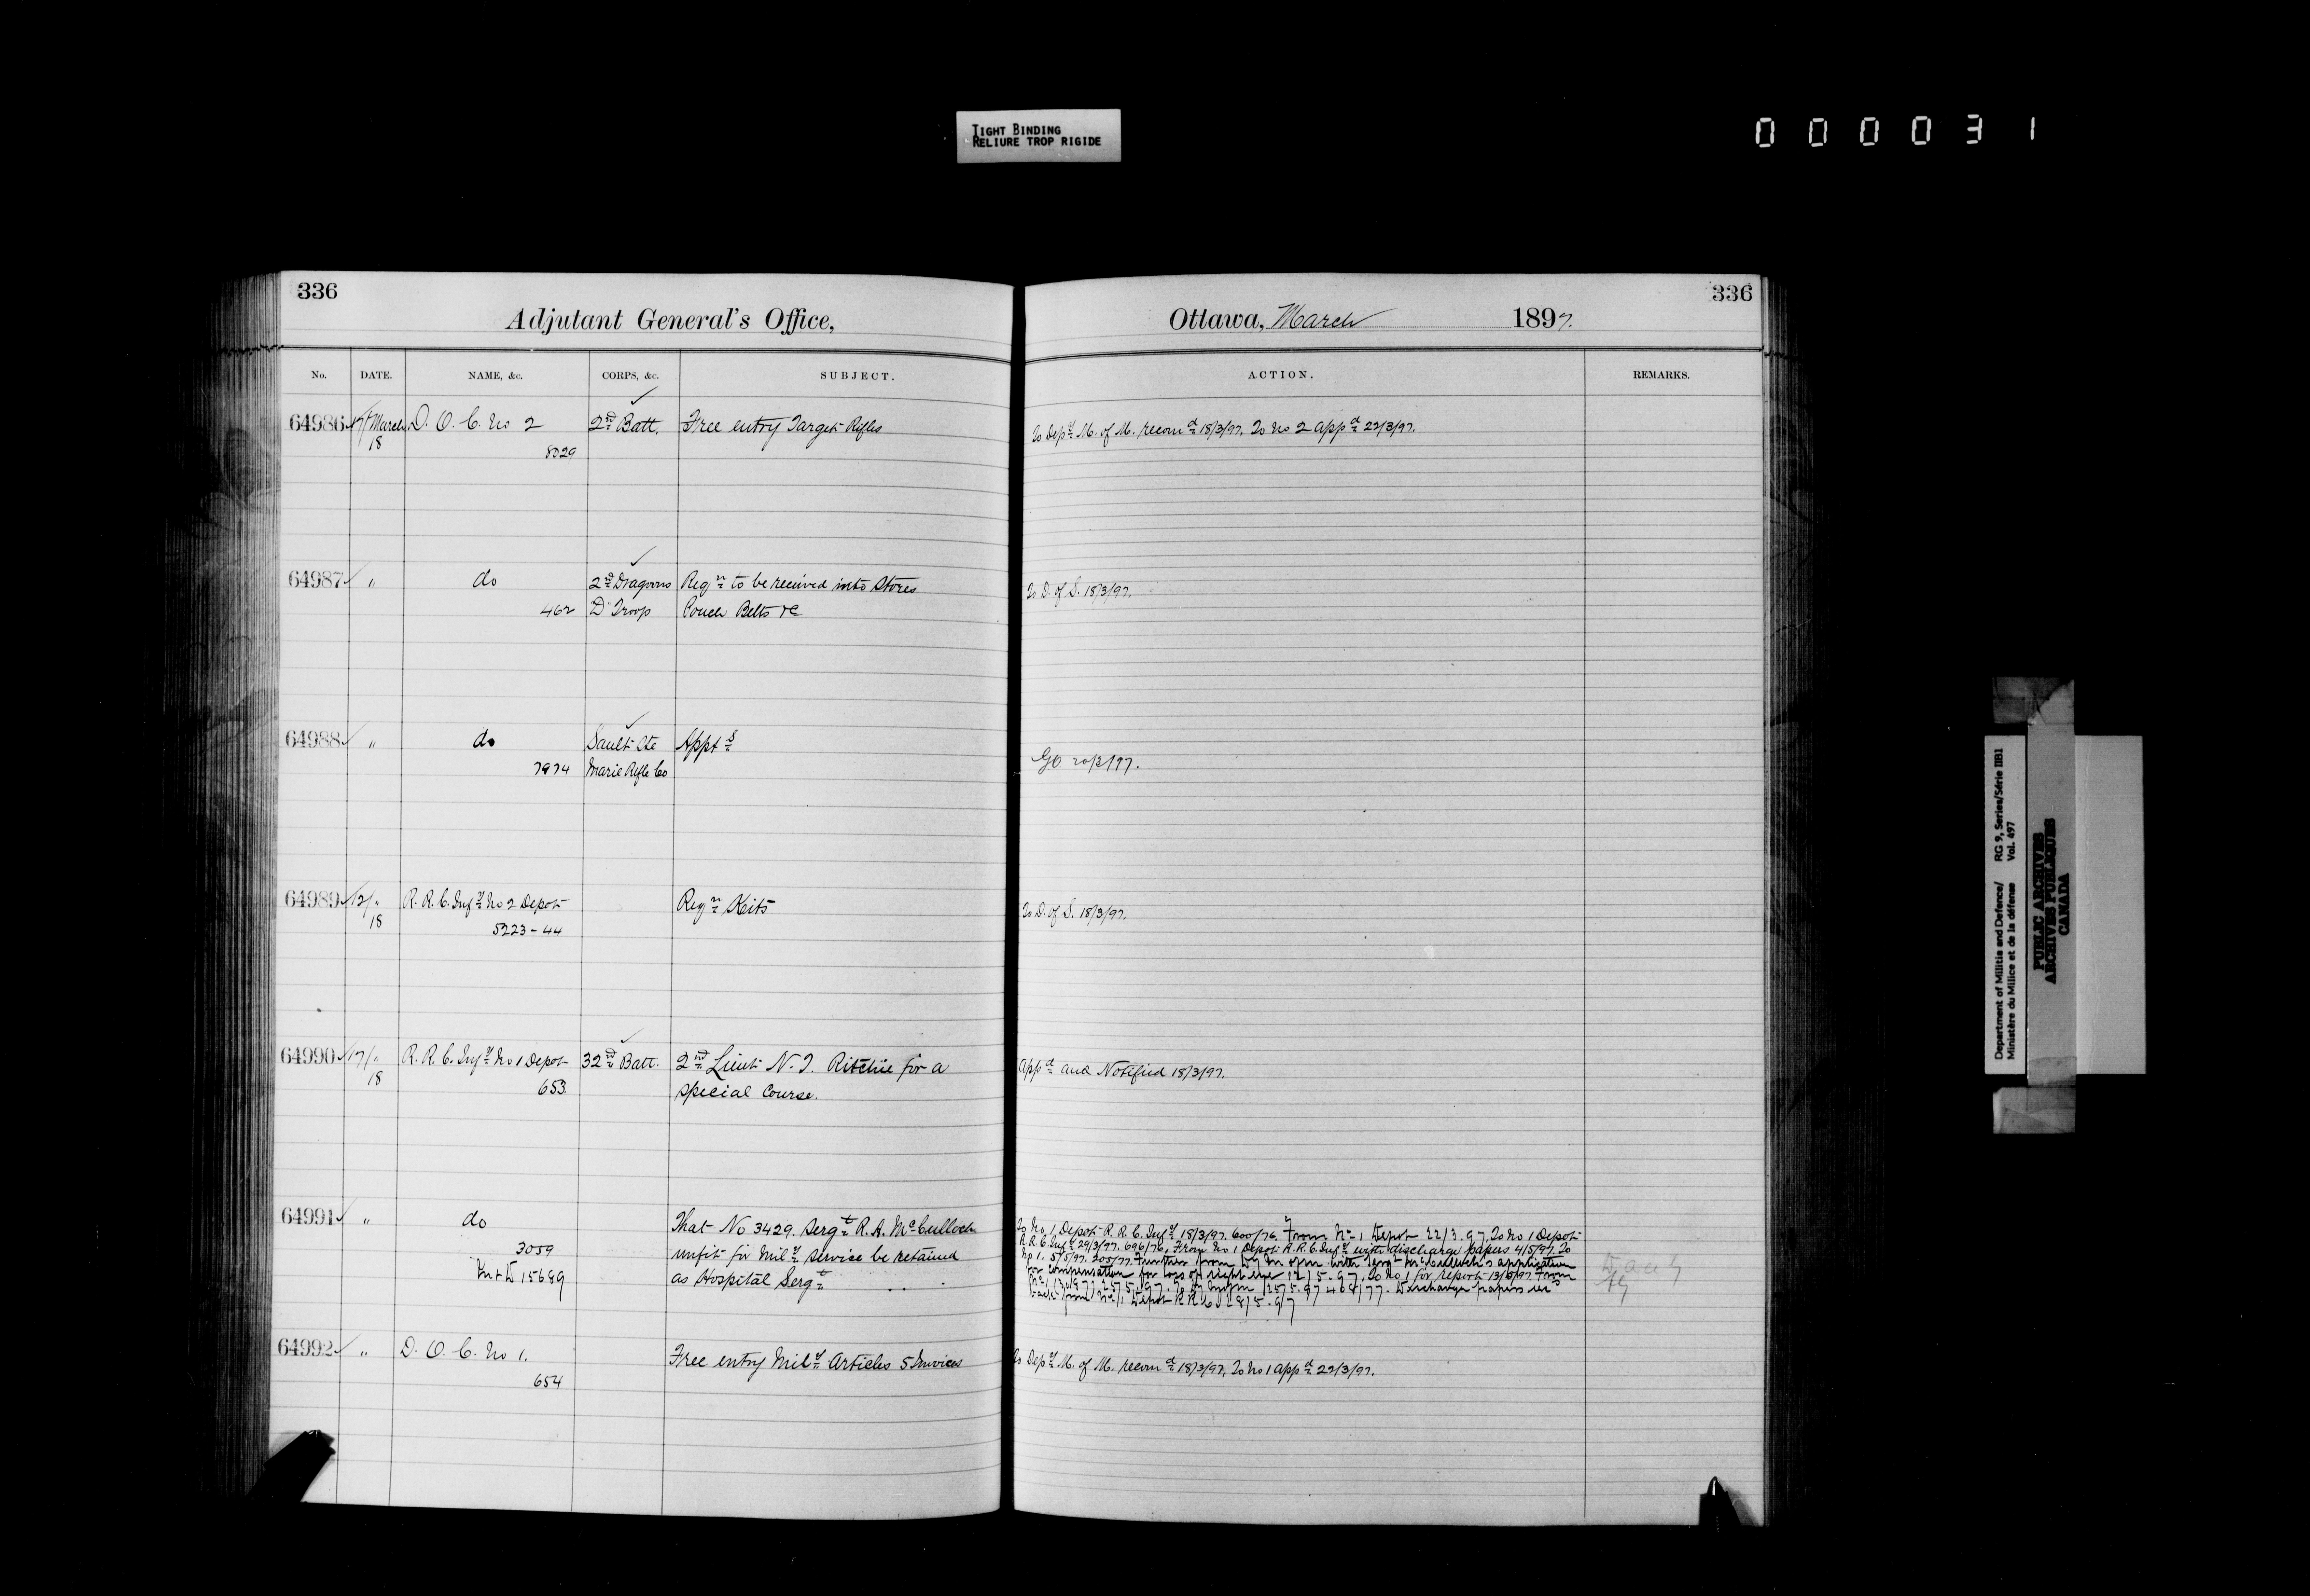 TIGHT BINDING
RELIURE TROP RIGIDE
000031
336
Adjutant General's Office,
No. DATE. NAME, &c. CORPS, &c. SUBJECT.
64986 17/March D. O. C. No 2 2nd Batt. Free entry Target Rifles
18
8029
64987 " do 2nd Dragoons Reqn to be received into Stores
462 D Troop Pouch Belts &c
64988 " do Sault Ste Appts
7974 Marie Rifle Co
64989 12/" R. R. C. Infy No 2 Depot Reqn Kits
18
5223-44
64990 17/" R. R. C. Infy No 1 Depot 32nd Batt. 2nd Lieut N. J. Ritchie for a
18
653 special Course.
64991 " do That No 3429. Sergt R. A. McCulloch
3059 unfit for Mily Service be retained
15689 as Hospital Sergt
64992 " D. O. C. No 1. Free entry Mily Articles 5 Invoices
654
336
Ottawa, March 1897.
ACTION. REMARKS.
To Depy M. of M. recomd 18/3/97. To No 2 appd 22/3/97.
To D. of S. 18/3/97.
GO
To D. of S. 18/3/97.
Appd and Notified 18/3/97.
To No 1 Depot R. R. C. Infy 18/3/97. 600/76. From No 1 Depot 22/3.97. To No 1 Depot
R. R. C. Infy 29/3/97. 696/76. From No 1 Depot R. R. C. Infy with discharge papers 4/5/97. To
No 1. 5/5/97. 205/77. Further from with Sergt McCulloch's application
for compensation for loss of right eye 12/5.97. To No 1 for report 13/5/97. From
No 1 25/5/97. 25/5.97 Discharge papers
back from No 1 Depot R R C I 28/5.97
To Depy M. of M. recomd 18/3/97. To No 1 appd 22/3/97.
Department of Militia and Defence/ RG 9, Series/Série IIB1
Ministère du Milice et de la défense Vol. 497
PUBLIC ARCHIVES
ARCHIVES PUBLIQUES
CANADA